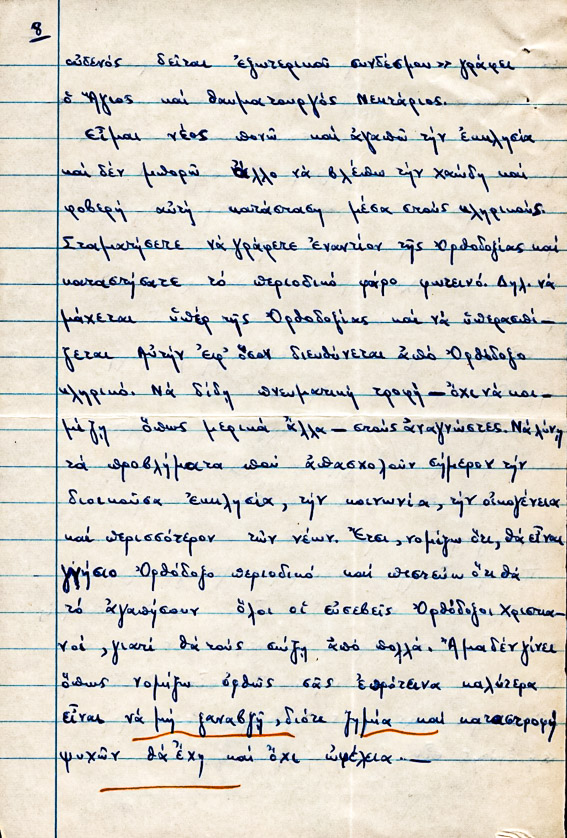 8
οὐδενός δεῖται ἐξωτερικοῦ συνδέσμου» γράφει
ὁ Ἅγιος καί θαυματουργός Νεκτάριος.
Εἶμαι νέος πονῶ καί ἀγαπῶ τήν ἐκκλησία
καί δέν μπορῶ ἄλλο νά βλέπω τήν χαώδη καί
φοβερή αὐτή κατάσταση μέσα στούς κληρικούς.
Σταματήσετε νά γράφετε ἐναντίον τῆς Ὀρθοδοξίας καί
καταστήσατε τό περιοδικό φάρο φωτεινό. Δηλ. νά
μάχεται ὑπέρ τῆς Ὀρθοδοξίας καί νά ὑπερασπί-
ζεται Αὐτήν ἐφ' ὅσον διευθύνεται ἀπό Ὀρθόδοξο
κληρικό. Νά δίδη πνευματική τροφή — ὄχι νά κοι-
μίζη ὅπως μερικά ἄλλα — στούς ἀναγνώστες. Νά λύνη
τά προβλήματα πού ἀπασχολοῦν σήμερον τήν
διοικοῦσα ἐκκλησία, τήν κοινωνία, τήν οἰκογένεια
καί περισσότερον τῶν νέων. Ἔτσι, νομίζω ὅτι, θά εἶναι
γνήσιο Ὀρθόδοξο περιοδικό καί πιστεύω ὅτι θά
τό ἀγαπήσουν ὅλοι οἱ εὐσεβεῖς Ὀρθόδοξοι Χριστια-
νοί, γιατί θά τούς σώζη ἀπό πολλά. Ἄμα δέν γίνει
ὅπως νομίζω ὀρθῶς σᾶς ἐπρότεινα καλύτερα
εἶναι νά μή ξαναβγῆ, διότι ζημία καί καταστροφή
ψυχῶν θά ἔχη καί ὄχι ὠφέλεια. —